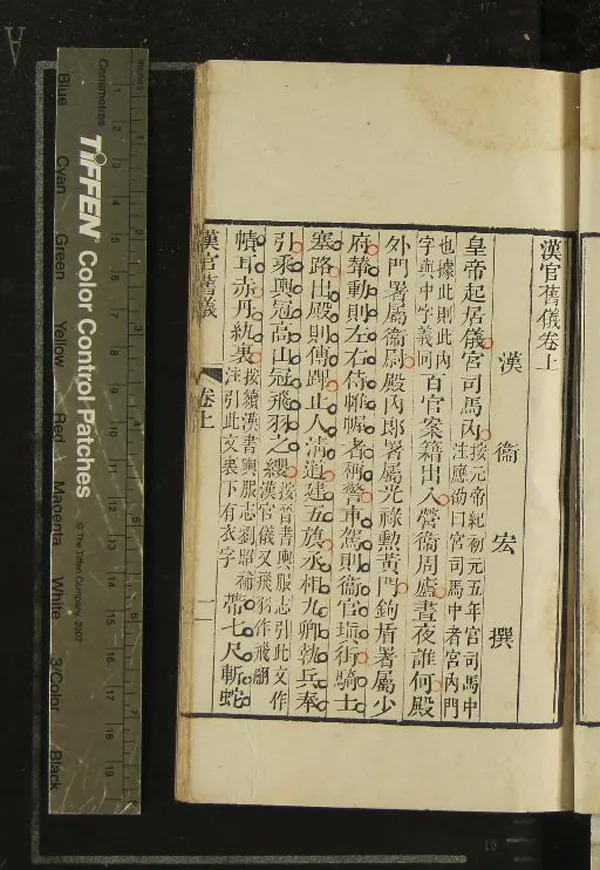 漢官舊儀卷上
漢 衞 宏 撰
皇帝起居儀宮司馬內按元帝紀初元五年宮司馬中
注應劭曰宮司馬中者宮內門
也據此則此內
字與中字義同百官案籍出入營衞周廬晝夜誰何殿
外門署屬衞尉殿內郎署屬光祿勲黃門鉤盾署屬少
府輦動則左右侍帷幄者稱警車駕則衞官塡街騎士
塞路出殿則傳蹕止人淸道建五旗丞相九卿執兵奉
引乘輿冠高山冠飛羽之纓按晉書輿服志引此文作
漢官儀又飛羽作飛翮
幘耳赤丹紈裏按續漢書輿服志劉昭補
注引此文裏下有衣字帶七尺斬蛇
漢官舊儀 卷上 一
TIFFEN Color Control Patches
© The Tiffen Company, 2007
Centimetres
Inches
1 2 3 4 5 6 7 8 9 10 11 12 13 14 15 16 17 18 19
Blue Cyan Green Yellow Red Magenta White 3/Color Black
A